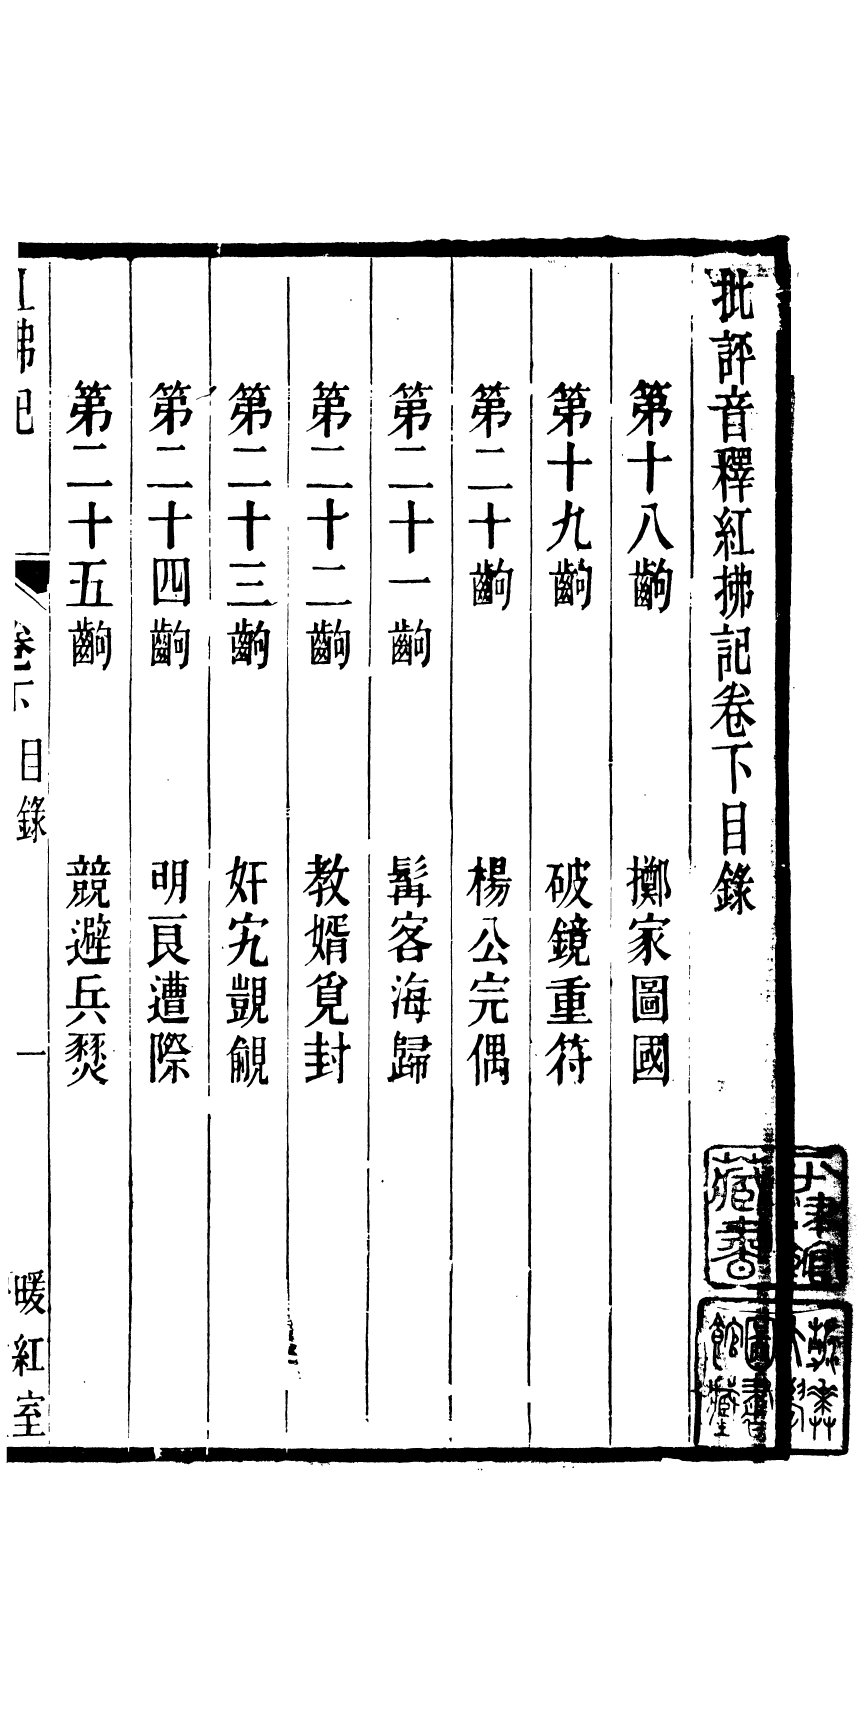 批評音釋紅拂記卷下目錄
第十八齣 擲家圖國
第十九齣 破鏡重符
第二十齣 楊公完偶
第二十一齣 髯客海歸
第二十二齣 教婿覓封
第二十三齣 奸宄覬覦
第二十四齣 明良遭際
第二十五齣 競避兵燹
紅拂記 卷下 目錄 一 暖紅室
藏書
館藏